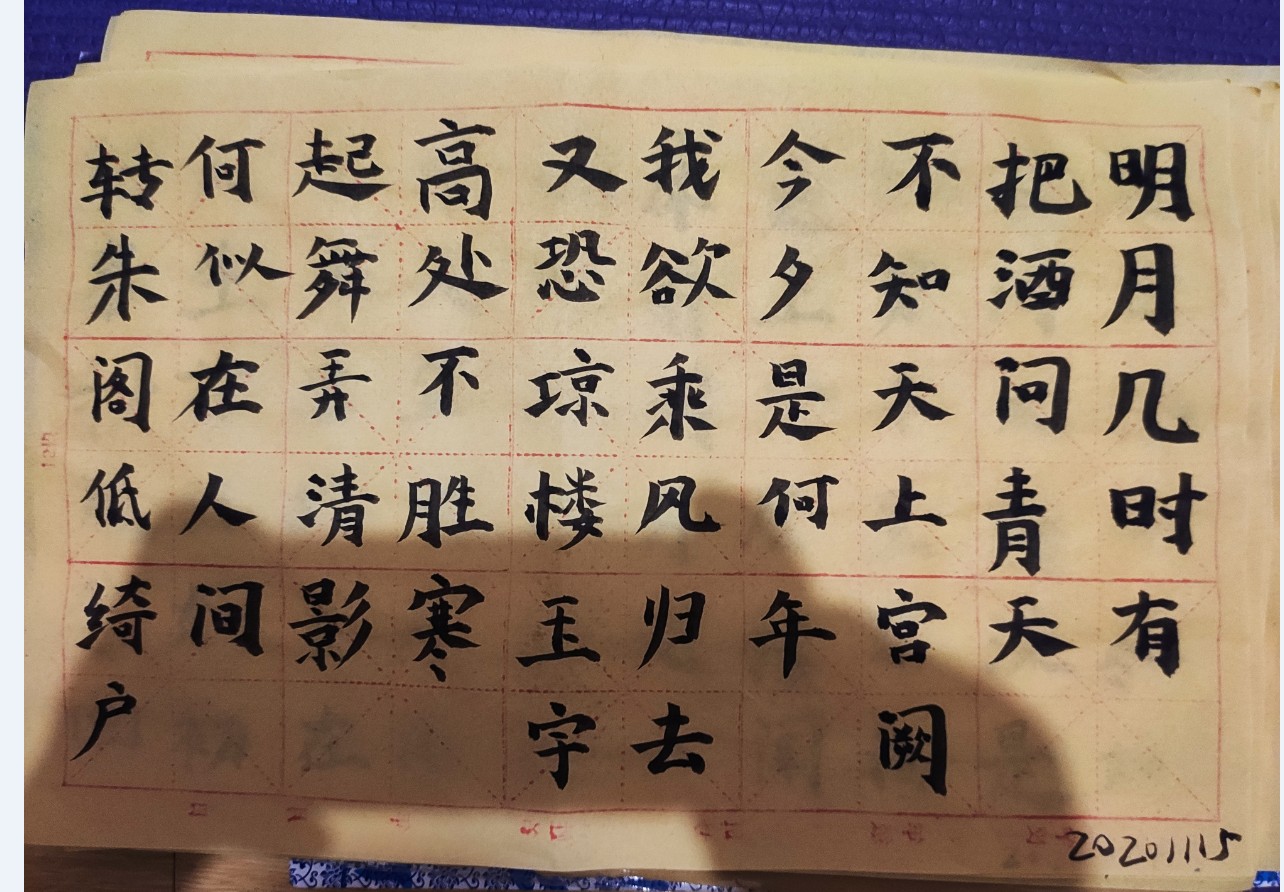 明月几时有
把酒问青天
不知天上宫阙
今夕是何年
我欲乘风归去
又恐琼楼玉宇
高处不胜寒
起舞弄清影
何似在人间
转朱阁低绮户
20201115